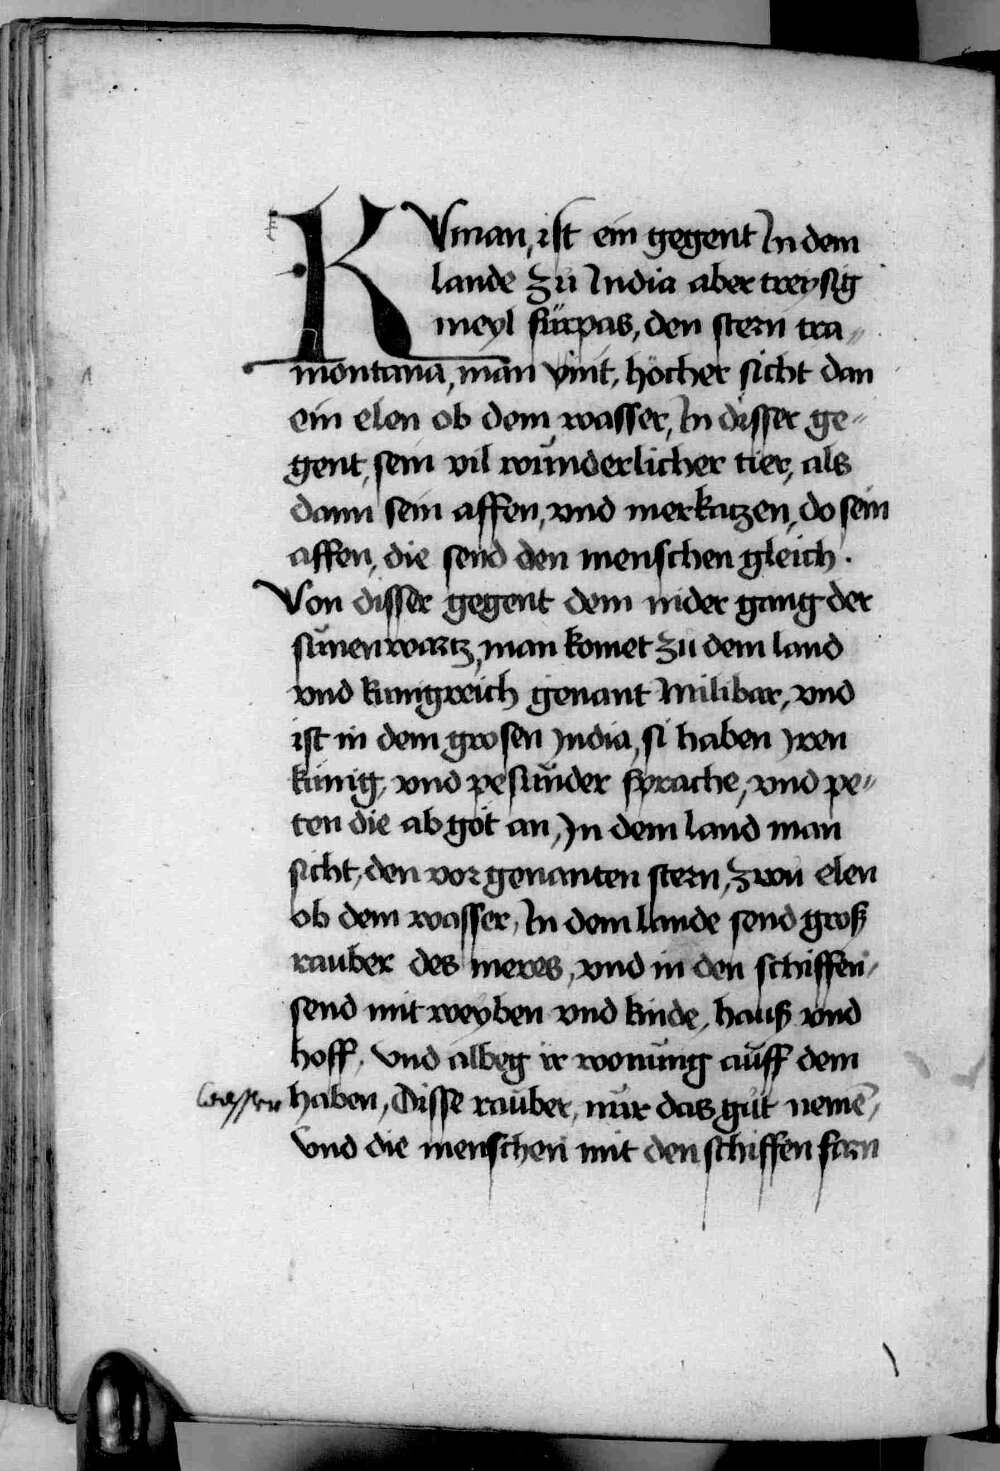 KVman, ist ein gegent In dem
lande zŭ India aber treysig
meyl fürpas, den stern tra„
montana, man vint, höcher sicht dan
ein elen ob dem wasser, In disser ge„
gent, sein vil wŭnderlicher tier, als
dann sein affen, vnd merkatzen, do sein
affen, die send den menschen gleich.
Von disser gegent dem nider gang der
sŭnen wartz, man komet zŭ dem land
vnd kunigreich genant Milibar, vnd
ist in dem grosen Jndia, si haben yren
kŭnig, vnd pesŭnder sprache, vnd pe„
ten die abgöt an, Jn dem land man
sicht, den vor genanten stern, zwŭ elen
ob dem wasser, In dem lande send groß
rauber des meres, vnd in den schiffen,
send mit weyben vnd kinde, hauß vnd
hoff, vnd albeg ir wonŭng aŭff dem
wasser haben, Disse raŭber, nŭr das gŭt nemē,
vnd die menschen mit den schiffen farn